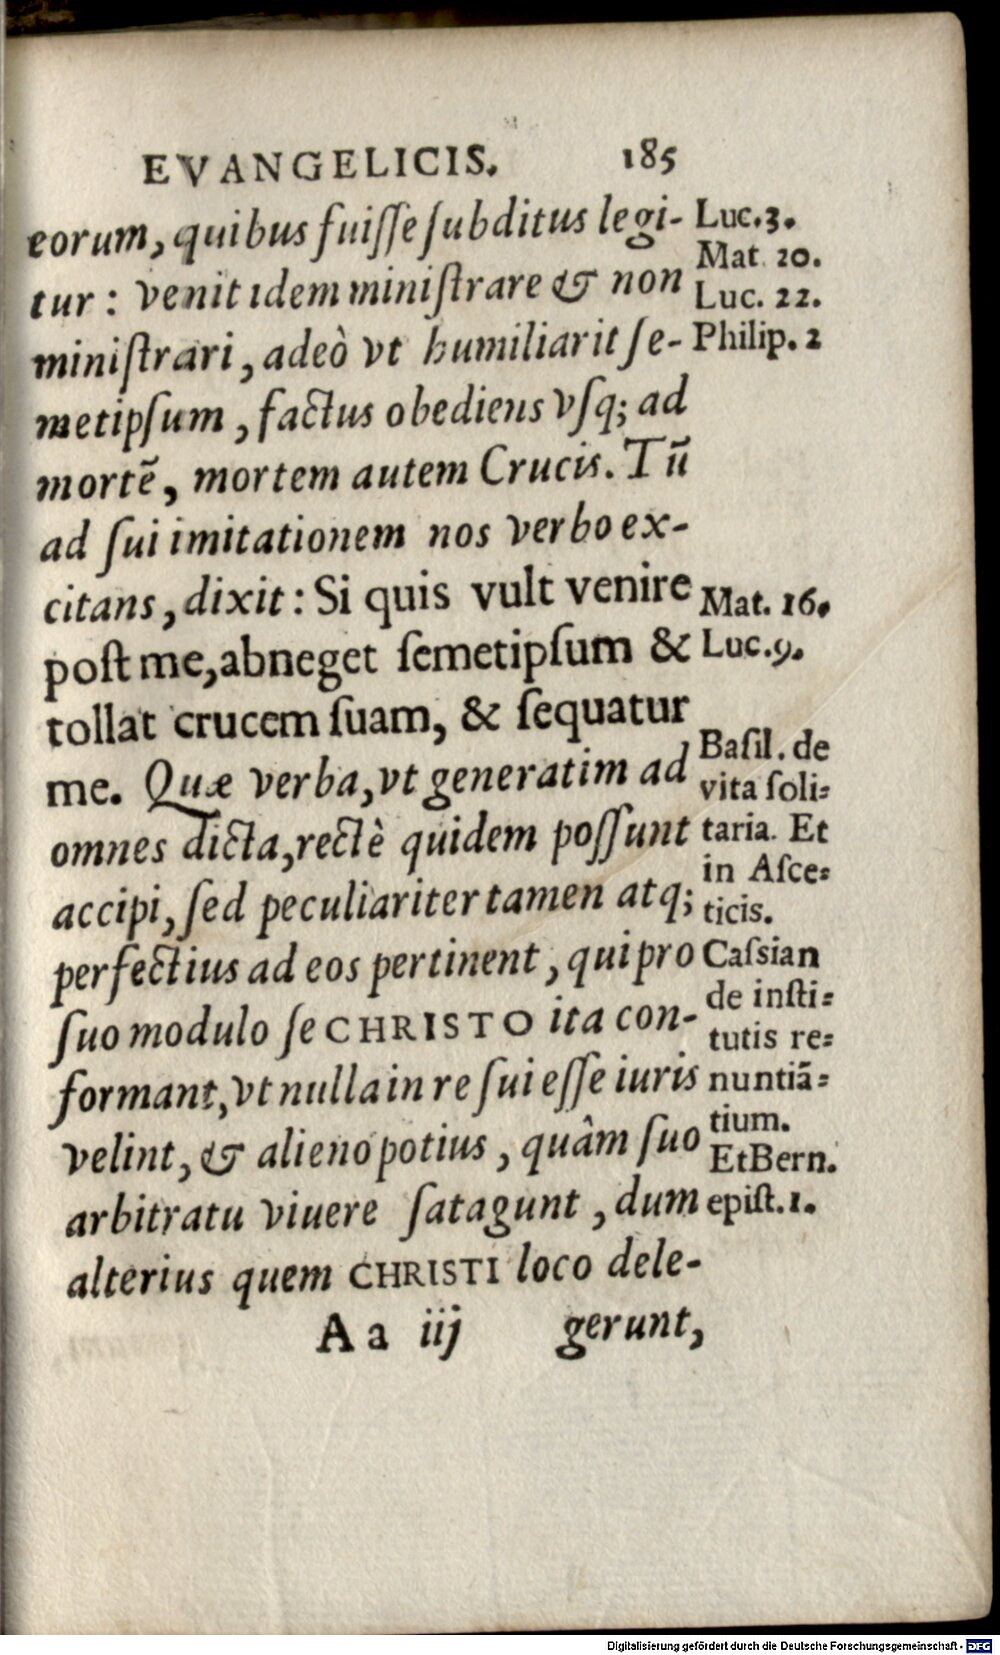 EVANGELICIS. 185
eorum, quibus fuiſſe ſubditus legi-
tur: venit idem miniſtrare & non
miniſtrari, adeò vt humiliarit ſe-
metipſum, factus obediens vſq; ad
mortē, mortem autem Crucis. Tū
ad ſui imitationem nos verbo ex-
citans, dixit: Si quis vult venire
poſt me, abneget ſemetipſum &
tollat crucem ſuam, & ſequatur
me. Quæ verba, vt generatim ad
omnes dicta, rectè quidem poſſunt
accipi, ſed peculiariter tamen atq;
perfectius ad eos pertinent, qui pro
ſuo modulo ſe CHRISTO ita con-
formant, vt nulla in re ſui eſſe iuris
velint, & alieno potius, quâm ſuo
arbitratu viuere ſatagunt, dum
alterius quem CHRISTI loco dele-
Aa iij gerunt,
Luc. 3.
Mat. 20.
Luc. 22.
Philip. 2
Mat. 16.
Luc. 9.
Baſil. de
vita ſoli-
taria. Et
in Aſce-
ticis.
Caſsian
de inſti-
tutis re-
nuntiā-
tium.
Et Bern.
epiſt. 1.
Digitalisierung gefördert durch die Deutsche Forschungsgemeinschaft - DFG